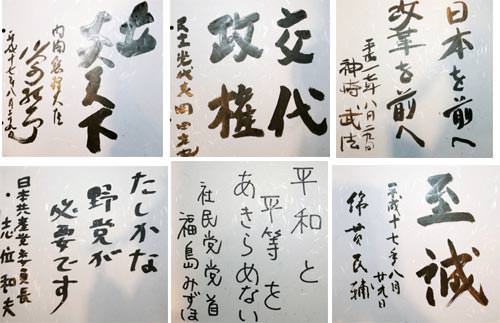 天下
内閣総理大臣
政権
交代
民主党代表 岡田克也
日本を前へ
改革を前へ
神崎武法
たしかな
野党が
必要です
日本共産党委員長
志位和夫
平和と
平等を
あきらめない
社民党党首
福島みずほ
至誠
平成十七年八月
廿九日
綿貫民輔